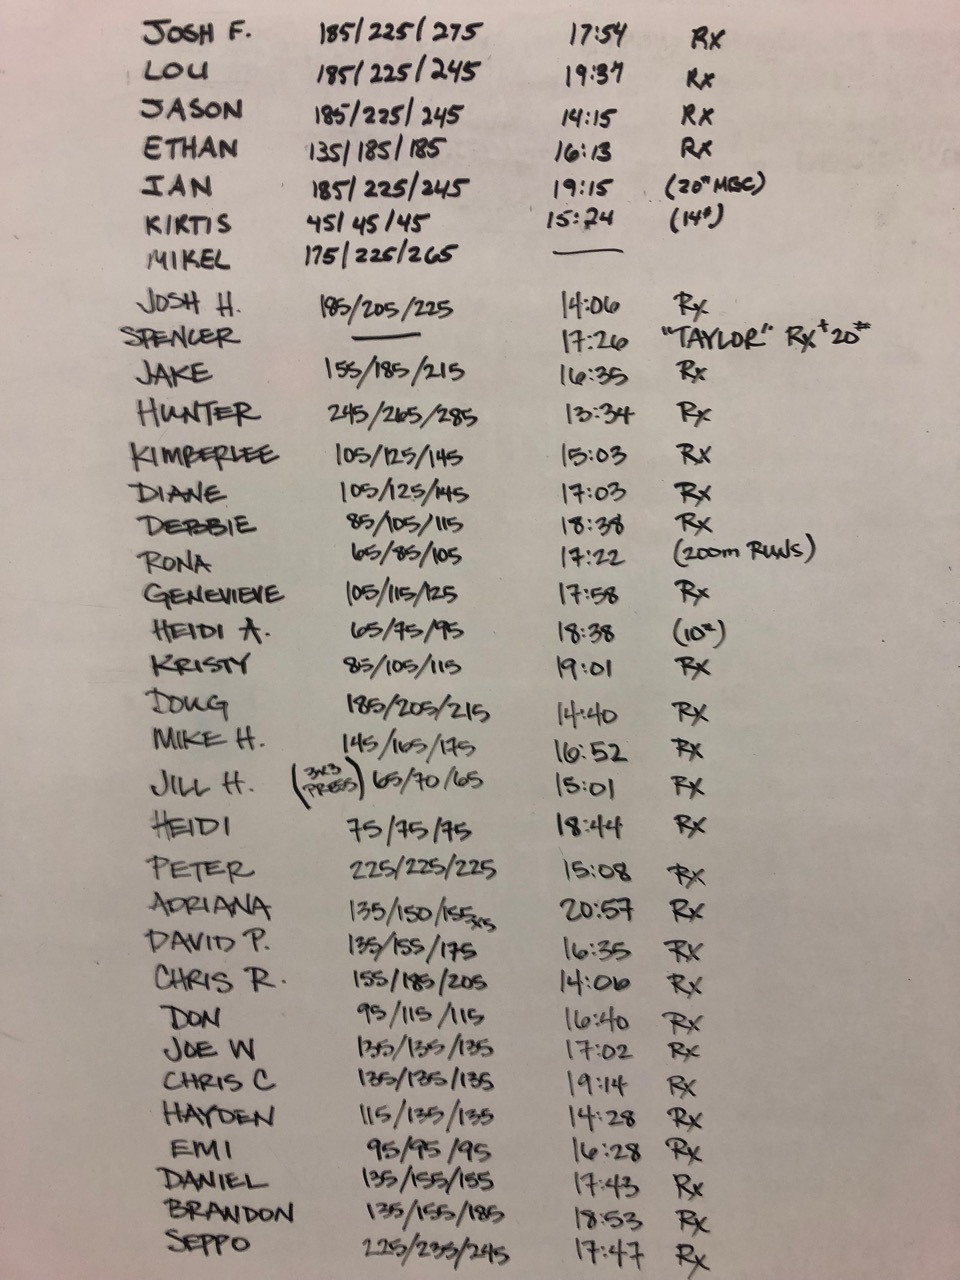 JOSH F. 185/225/275 17:54 Rx
LOU 185/225/245 19:37 Rx
JASON 185/225/245 14:15 Rx
ETHAN 135/185/185 16:13 Rx
IAN 185/225/245 19:15 (20# MBC)
KIRTIS 45/45/45 15:24 (14#)
MIKEL 175/225/265 —
JOSH H. 185/205/225 14:06 Rx
SPENCER — 17:26 "TAYLOR" Rx+ 20#
JAKE 155/185/215 16:35 Rx
HUNTER 245/265/285 13:34 Rx
KIMBERLEE 105/125/145 15:03 Rx
DIANE 105/125/145 17:03 Rx
DEBBIE 85/105/115 18:38 Rx
RONA 65/85/105 17:22 (200m RUNS)
GENEVIEVE 105/115/125 17:58 Rx
HEIDI A. 65/75/95 18:38 (10#)
KRISTY 85/105/115 19:01 Rx
DOUG 185/205/215 14:40 Rx
MIKE H. 145/165/175 16:52 Rx
JILL H. (3x3 PRESS) 65/70/65 15:01 Rx
HEIDI 75/75/75 18:44 Rx
PETER 225/225/225 15:08 Rx
ADRIANA 135/150/155x5 20:57 Rx
DAVID P. 135/155/175 16:35 Rx
CHRIS R. 155/185/205 14:06 Rx
DON 95/115/115 16:40 Rx
JOE W 135/135/135 17:02 Rx
CHRIS C 135/135/135 19:14 Rx
HAYDEN 115/135/135 14:28 Rx
EMI 95/95/95 16:28 Rx
DANIEL 135/155/155 17:43 Rx
BRANDON 135/155/185 18:53 Rx
SEPPO 225/235/245 17:47 Rx